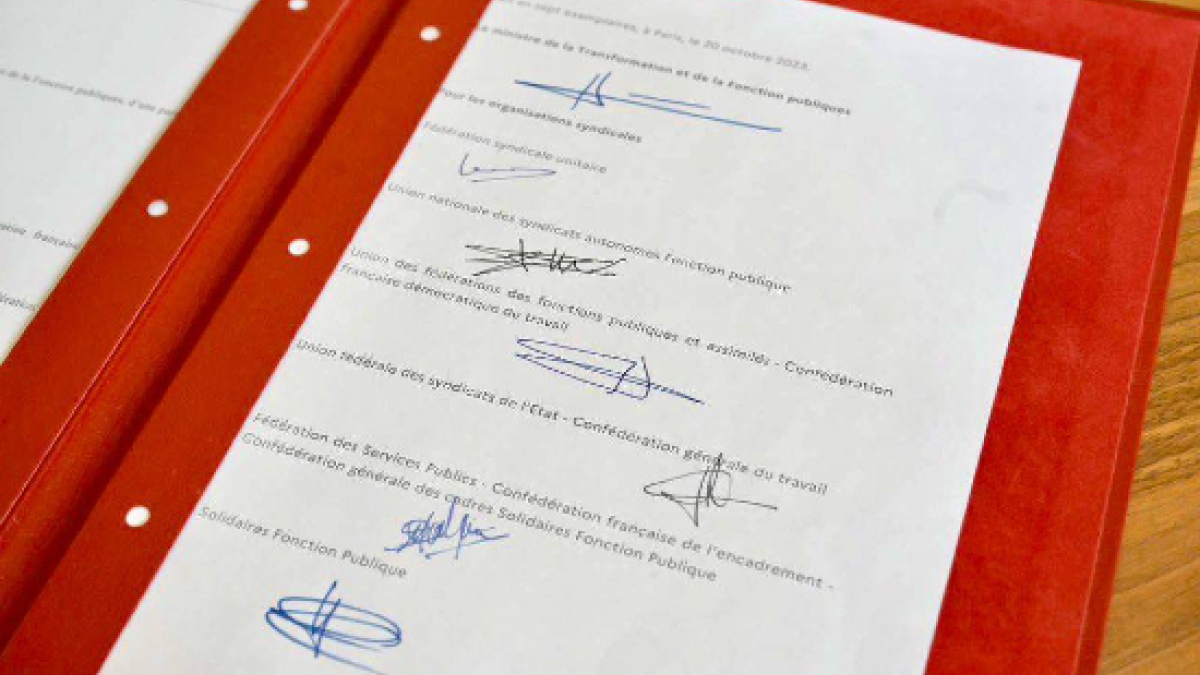 en sept exemplaires, à Paris, le 20 octobre 2023.
ministre de la Transformation et de la Fonction publiques
Pour les organisations syndicales
Fédération syndicale unitaire
Union nationale des syndicats autonomes Fonction publique
Union des fédérations des fonctions publiques et assimilés - Confédération
française démocratique du travail
Union fédérale des syndicats de l'Etat - Confédération générale du travail
Fédération des Services Publics - Confédération française de l'encadrement -
Confédération générale des cadres Solidaires Fonction Publique
Solidaires Fonction Publique
de la Fonction publiques, d'une
française